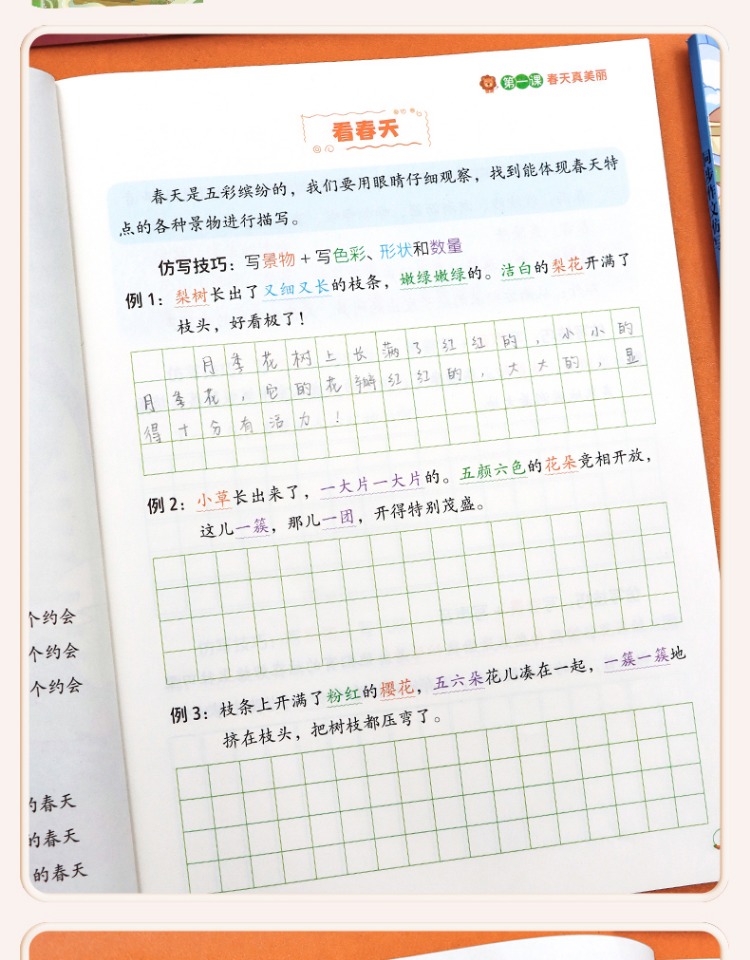 第一课 春天真美丽
看春天
春天是五彩缤纷的，我们要用眼睛仔细观察，找到能体现春天特
点的各种景物进行描写。
仿写技巧：写景物+写色彩、形状和数量
例1：梨树长出了又细又长的枝条，嫩绿嫩绿的。洁白的梨花开满了
枝头，好看极了！
月季花树上长满了红红的，小小的
月季花，它的花瓣红红的，大大的，显
得十分有活力！
例2：小草长出来了，一大片一大片的。五颜六色的花朵竞相开放，
这儿一簇，那儿一团，开得特别茂盛。
例3：枝条上开满了粉红的樱花，五六朵花儿凑在一起，一簇一簇地
挤在枝头，把树枝都压弯了。
个约会
个约会
个约会
的春天
的春天
的春天